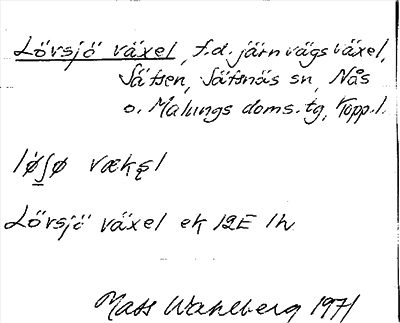 Lövsjö växel, f.d. järnvägsväxel,
Säfsen, Säfsnäs sn, Nås
o. Malungs doms. tg, Kopp.l.
løʃø væksl
Lövsjö växel ek 12E 1h
Mass Wahlberg 1971